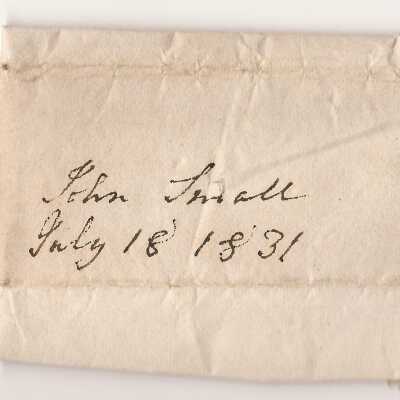 John Small
July 18 1831